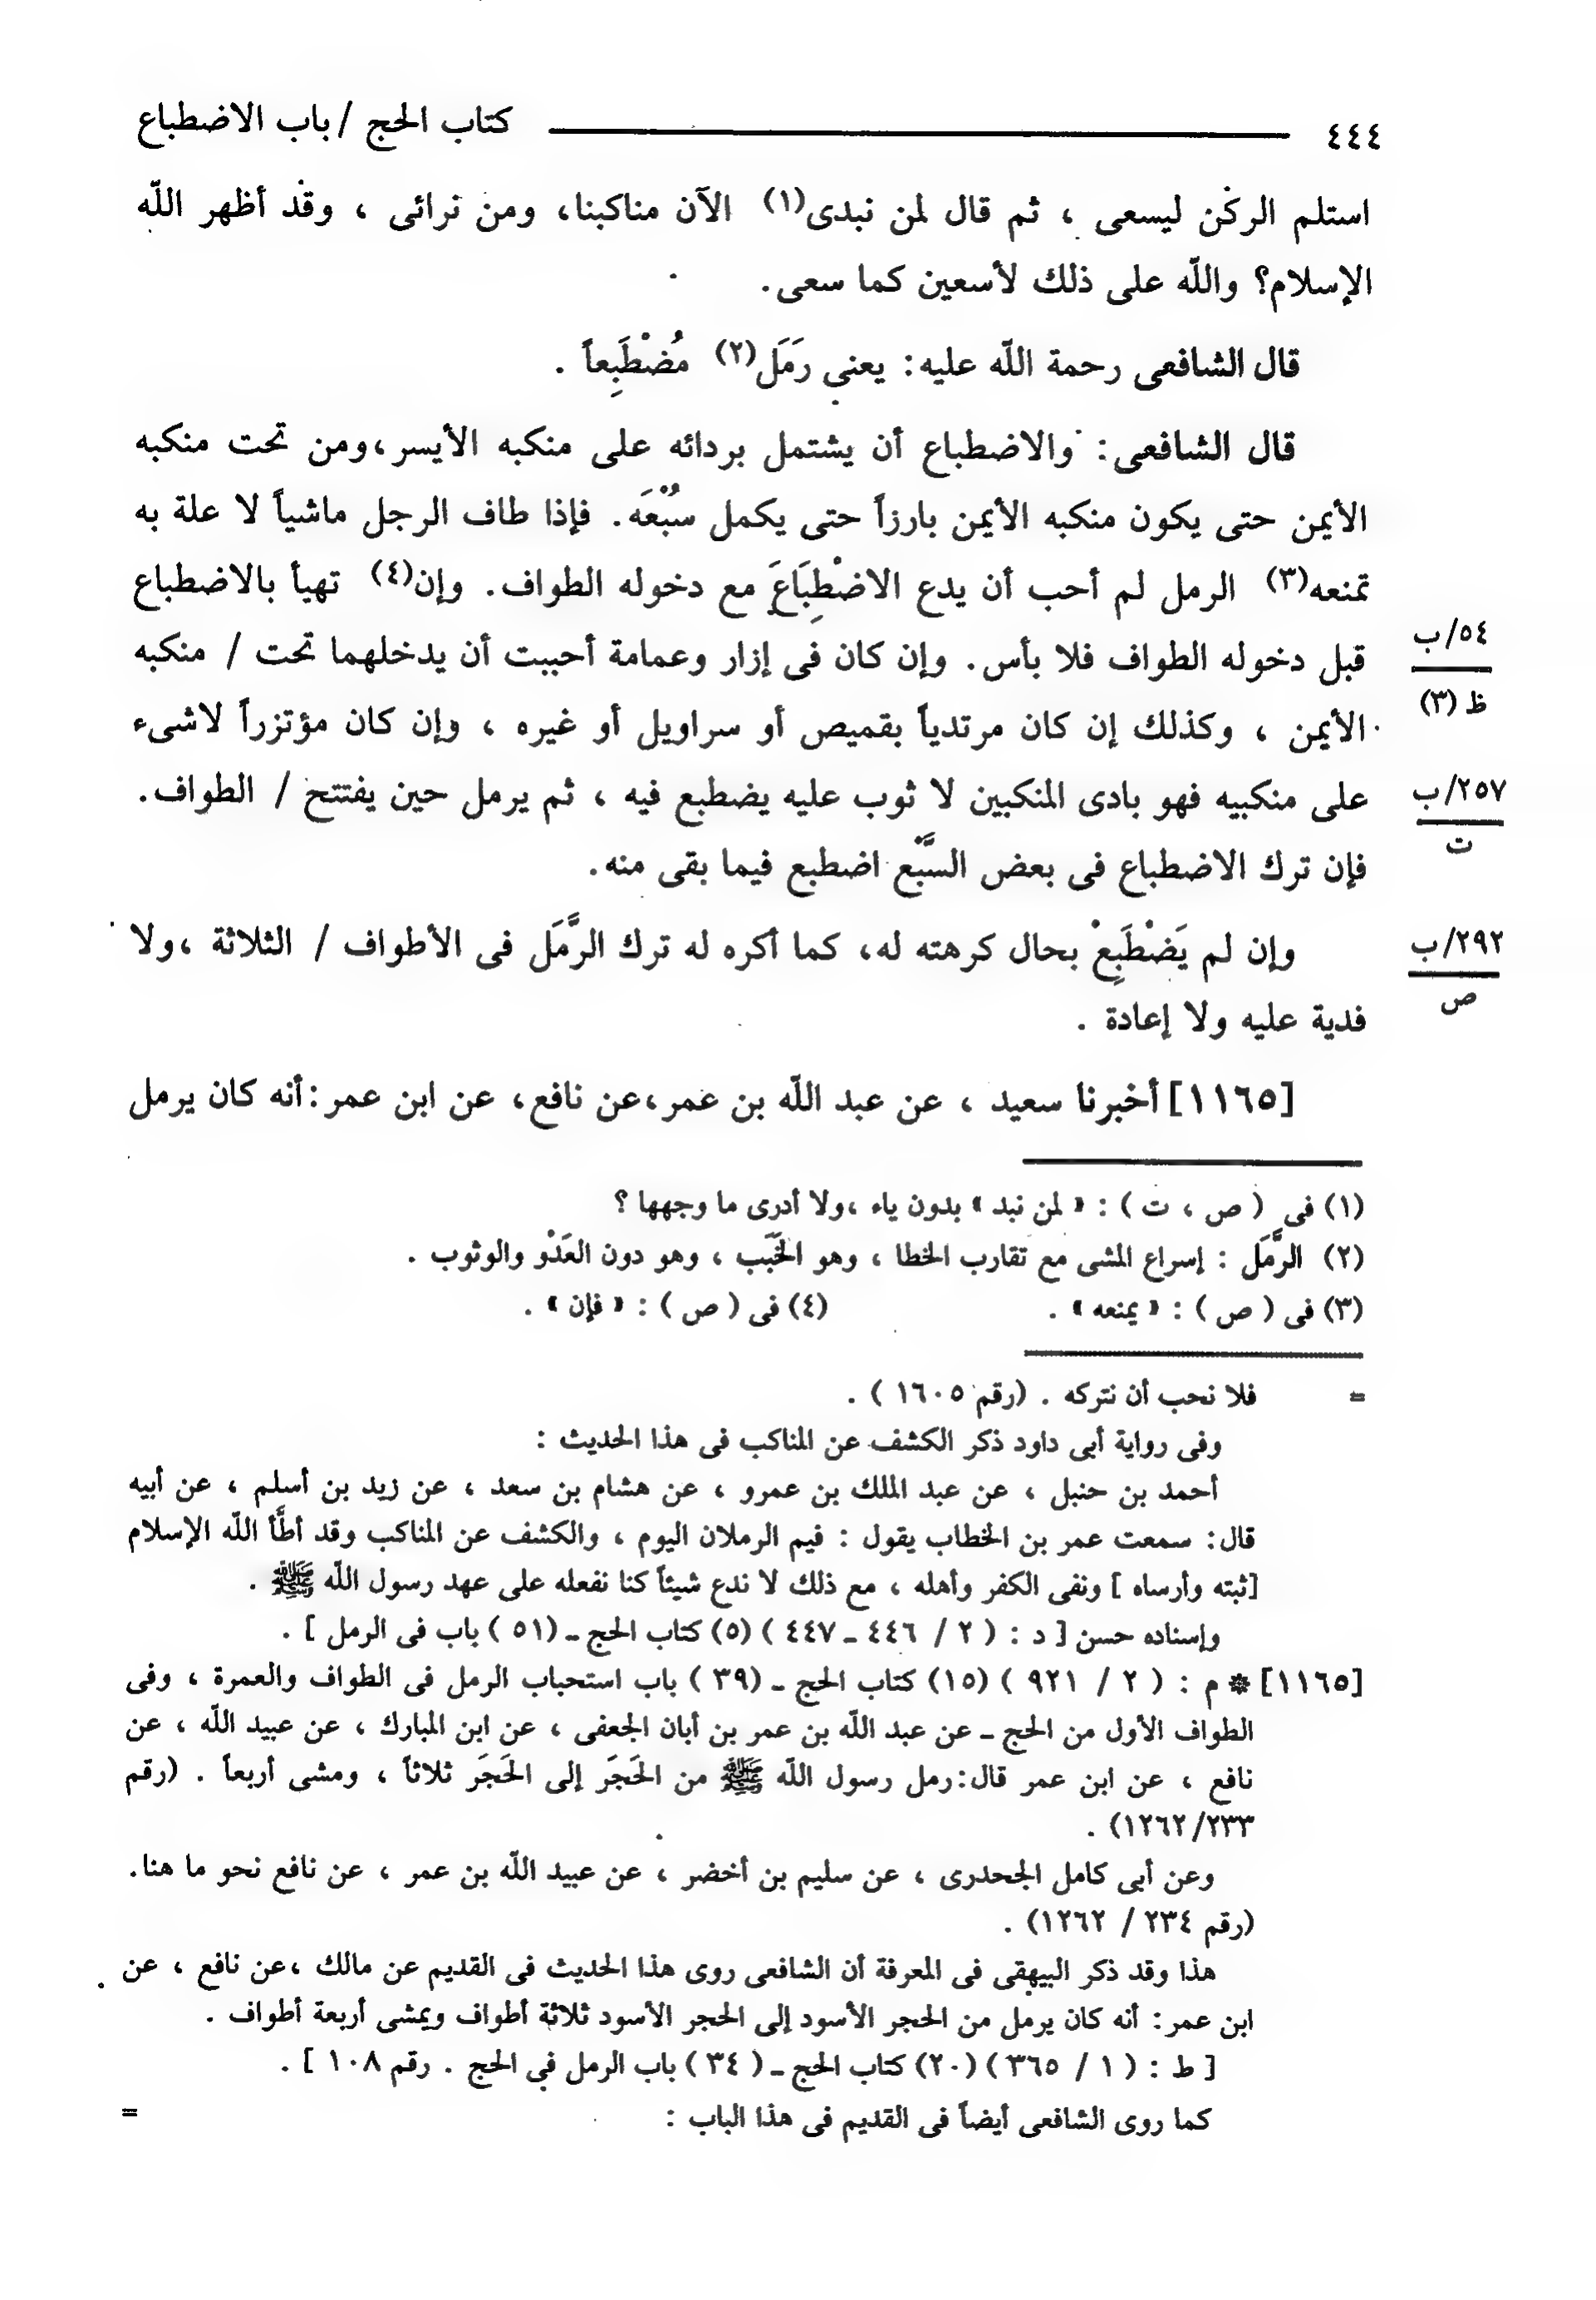 ٤٤٤ كتاب الحج / باب الاضطباع
استلم الركن ليسعى ، ثم قال لمن نبدى(١) الآن مناكبنا، ومن نرائى ، وقد أظهر اللّه
الإسلام؟ واللّه على ذلك لأسعين كما سعى.
قال الشافعى رحمة اللّه عليه: يعني رَمَل(٢) مُضْطَبِعاً .
قال الشافعى: والاضطباع أن يشتمل بردائه على منكبه الأيسر،ومن تحت منكبه
الأيمن حتى يكون منكبه الأيمن بارزاً حتى يكمل سُبْعَه. فإذا طاف الرجل ماشياً لا علة به
تمنعه(٣) الرمل لم أحب أن يدع الاضْطِبَاعَ مع دخوله الطواف. وإن(٤) تهيأ بالاضطباع
قبل دخوله الطواف فلا بأس. وإن كان فى إزار وعمامة أحببت أن يدخلهما تحت / منكبه
٥٤/ب
ظ (٣)
الأيمن ، وكذلك إن كان مرتدياً بقميص أو سراويل أو غيره ، وإن كان مؤتزراً لاشىء
على منكبيه فهو بادى المنكبين لا ثوب عليه يضطبع فيه ، ثم يرمل حين يفتتح / الطواف.
٢٥٧/ب
ت
فإن ترك الاضطباع فى بعض السَّبْع اضطبع فيما بقى منه.
وإن لم يَضْطَبِعْ بحال كرهته له، كما أكره له ترك الرَّمَل فى الأطواف / الثلاثة ،ولا
٢٩٢/ب
ص
فدية عليه ولا إعادة .
[١١٦٥] أخبرنا سعيد ، عن عبد اللّه بن عمر،عن نافع، عن ابن عمر:أنه كان يرمل
(١) فى ( ص ، ت ) : « لمن نبد » بدون ياء ،ولا أدرى ما وجهها ؟
(٢) الرَّمَل : إسراع المشى مع تقارب الخطا ، وهو الخَبَب ، وهو دون العَدْو والوثوب .
(٣) فى ( ص ) : « يمنعه » . (٤) فى ( ص ) : « فإن » .
= فلا نحب أن نتركه . (رقم ١٦٠٥ ) .
وفى رواية أبى داود ذكر الكشف عن المناكب فى هذا الحديث :
أحمد بن حنبل ، عن عبد الملك بن عمرو ، عن هشام بن سعد ، عن زيد بن أسلم ، عن أبيه
قال: سمعت عمر بن الخطاب يقول : فيم الرملان اليوم ، والكشف عن المناكب وقد أطَّأ اللّه الإسلام
[ثبته وأرساه ] ونفى الكفر وأهله ، مع ذلك لا ندع شيئاً كنا نفعله على عهد رسول اللّه ﷺ .
وإسناده حسن [ د : ( ٢ / ٤٤٦ ـ ٤٤٧ ) (٥) كتاب الحج ـ (٥١ ) باب فى الرمل ] .
[١١٦٥] * م : ( ٢ / ٩٢١ ) (١٥) كتاب الحج ـ (٣٩ ) باب استحباب الرمل فى الطواف والعمرة ، وفى
الطواف الأول من الحج ـ عن عبد اللّه بن عمر بن أبان الجعفى ، عن ابن المبارك ، عن عبيد اللّه ، عن
نافع ، عن ابن عمر قال:رمل رسول اللّه ﷺ من الحَجَر إلى الحَجَر ثلاثاً ، ومشى أربعاً . (رقم
١٢٦٢/٢٣٣) .
وعن أبى كامل الجحدرى ، عن سليم بن أخضر ، عن عبيد اللّه بن عمر ، عن نافع نحو ما هنا.
(رقم ٢٣٤ / ١٢٦٢) .
هذا وقد ذكر البيهقى فى المعرفة أن الشافعى روى هذا الحديث فى القديم عن مالك ،عن نافع ، عن
ابن عمر: أنه كان يرمل من الحجر الأسود إلى الحجر الأسود ثلاثة أطواف ويمشى أربعة أطواف .
[ ط : ( ١ / ٣٦٥ ) (٢٠) كتاب الحج ـ ( ٣٤ ) باب الرمل في الحج . رقم ١٠٨ ] .
كما روى الشافعى أيضاً فى القديم فى هذا الباب : =